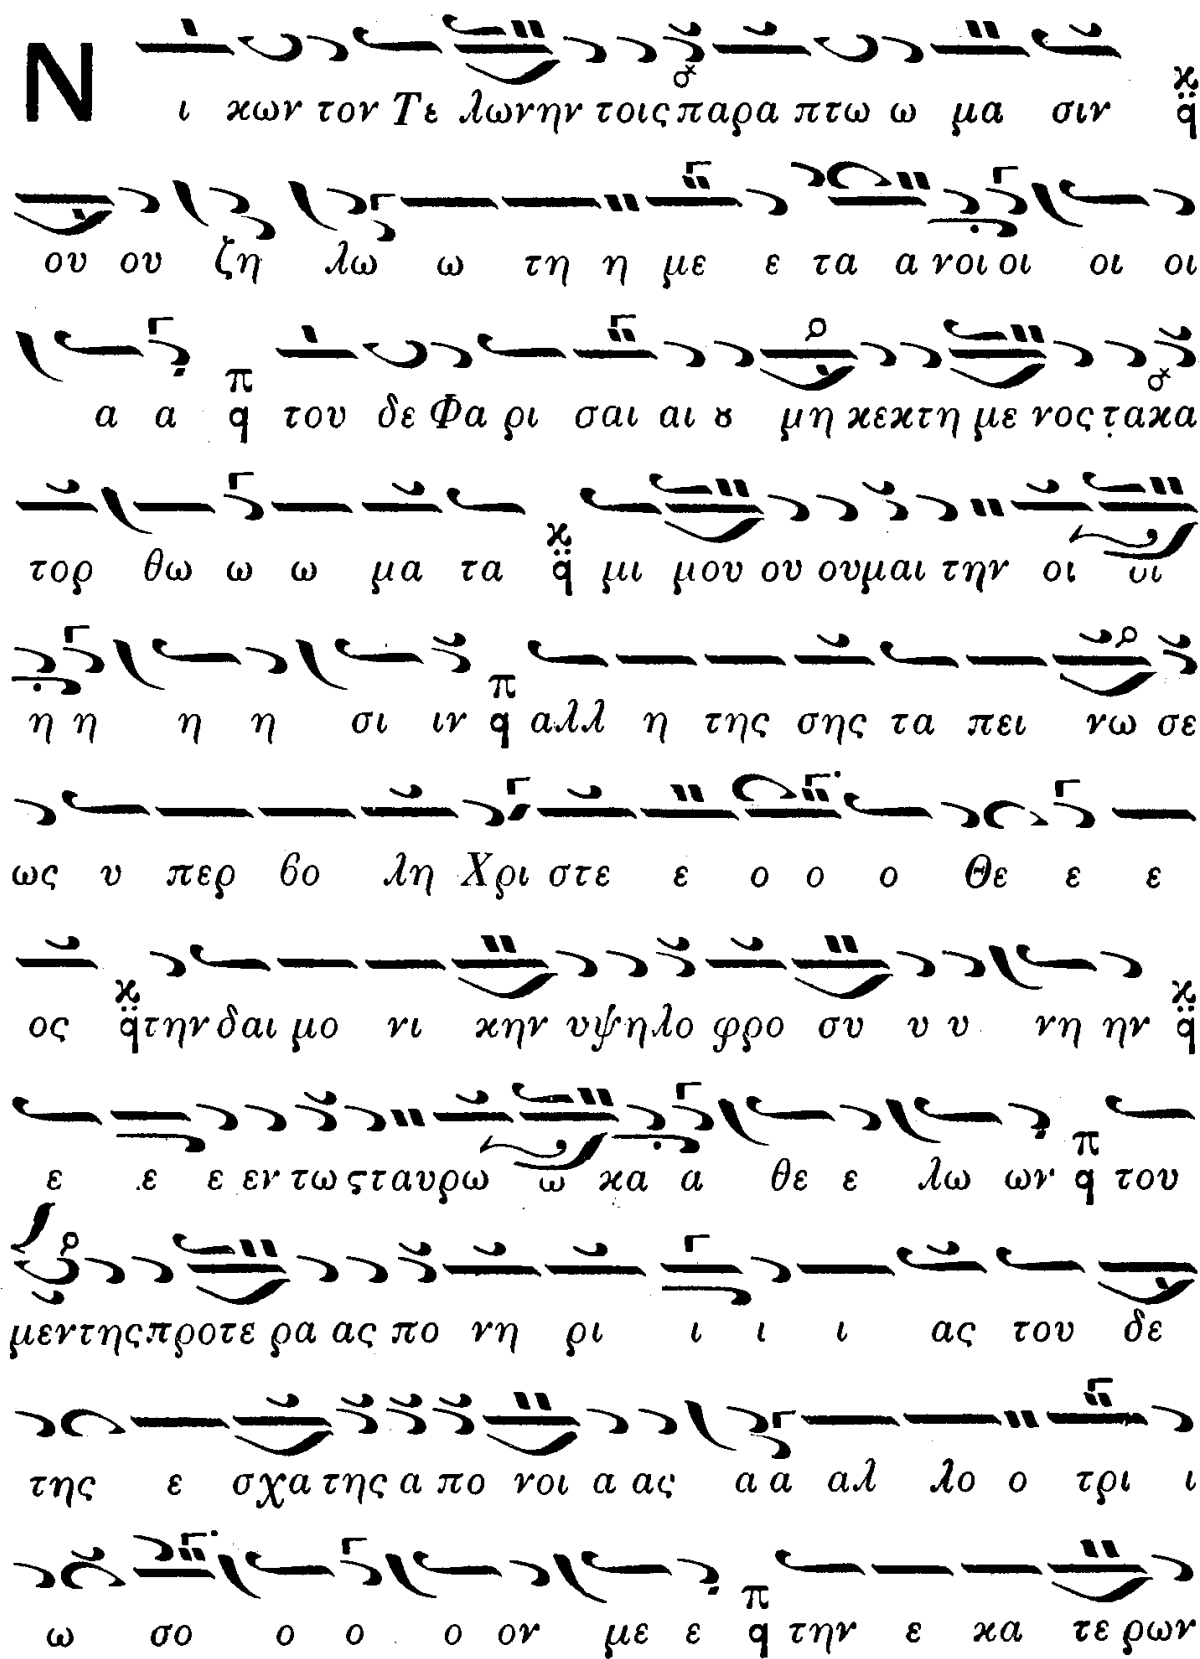 Ν ι κων τον Τε λωνην τοις παρα πτω ω μα σιν ϰ q
ου ου ζη λω ω τη η με ε τα α νοι οι οι οι
α α π q του δε Φα ρι σαι αι ȣ μη κεκτη με νος τακα
τορ θω ω ω μα τα ϰ q μι μου ου ουμαι την οι οι
η η η η σι ιν π q αλλ η της σης τα πει νω σε
ως υ περ βο λη Χρι στε ε ο ο ο Θε ε ε
ος ϰ q την δαι μο νι κην υψηλο φρο συ υ υ νη ην ϰ q
ε ε ε εν τω σταυρω ω κα α θε ε λω ων π q του
μεν της προτε ρα ας πο νη ρι ι ι ι ας του δε
της ε σχα της α πο νοι α ας α α αλ λο ο τρι ι
ω σο ο ο ο ον με ε π q την ε κα τε ρων